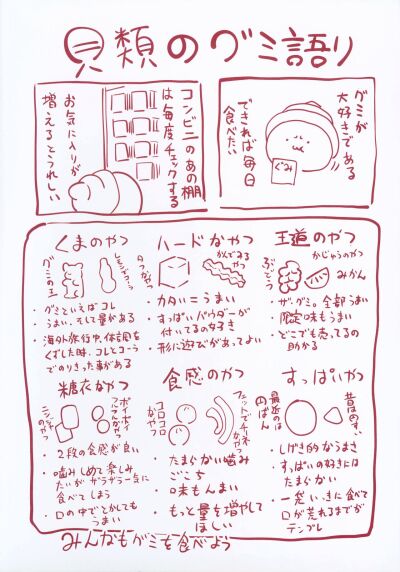 貝類のグミ語り
グミが
大好きである
できれば毎日
食べたい
ぐみ
コンビニのあの棚
は毎度チェックする
お気に入りが
増えるとうれしい
王道のやつ
かじゅうのやつ
ぶどう
みかん
・ザ・グミ。全部うまい
・限定味もうまい
・どこでも売ってるの
助かる
ハードなやつ
かんでみるやつ
タフなやつ
・カタい＝うまい
・すっぱいパウダーが
付いてるの好き
・形に遊びがあってよい
くまのやつ
グミの王
・グミといえばコレ
・うまい、そして量がある
・海外旅行中、体調を
くずした時、コレとコーラ
でのりきった事がある
すっぱいやつ
最近のは
円ばん
・しげき的なうまさ
・すっぱいの好きには
たまらない
・一袋いっきに食べて
口が荒れるまでが
テンプレ
食感のやつ
コロコロ
なやつ
・たまらない噛み
ごこち
・味もんまい
・もっと量を増やして
ほしい
糖衣なやつ
・2段の食感が良い
・噛みしめて楽しみ
たいがザラザラー気に
食べてしまう
・口の中でとかしても
うまい
みんなもグミを食べよう